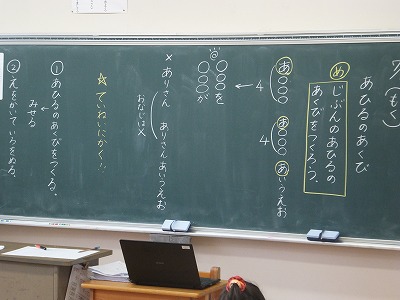 7(もく)
あひるのあくび
め じぶんのあひるの
あくびをつくろう。
あ〇〇〇 4
あ〇〇〇〇 4
あいうえお
@
〇〇〇を ←
〇〇〇が
× ありさん ありさんあいうえお
おなじは×
☆ていねいにかく!!
① あひるのあくびをつくる。
← みせる
② えをかいて いろをぬる。